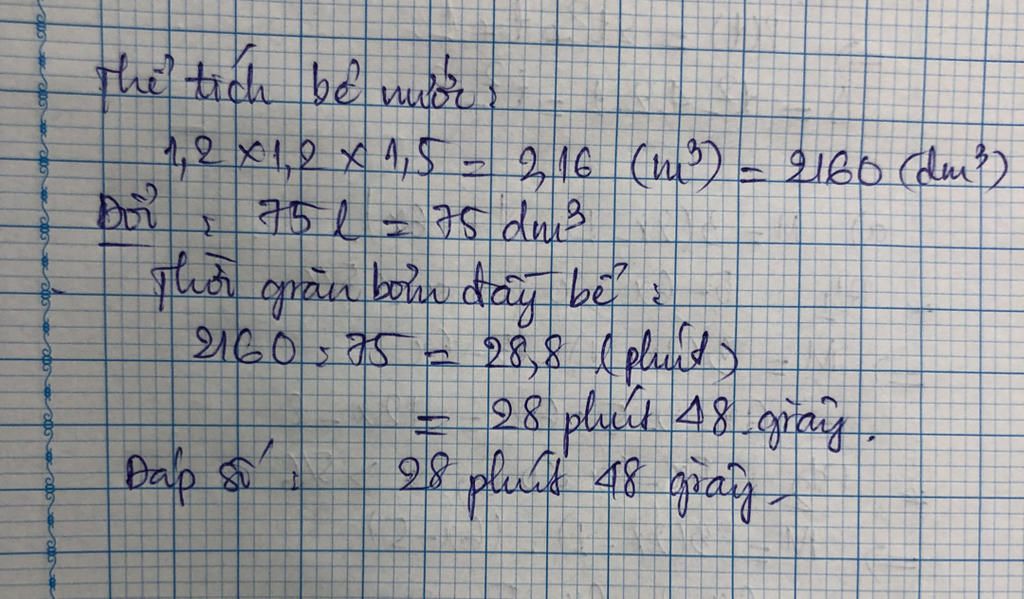 Thể tích bể nước :
1,2 x 1,2 x 1,5 = 2,16 (m³) = 2160 (dm³)
Đổi : 75 l = 75 dm³
Thời gian bơm đầy bể :
2160 : 75 = 28,8 (phút)
= 28 phút 48 giây.
Đáp số : 28 phút 48 giây